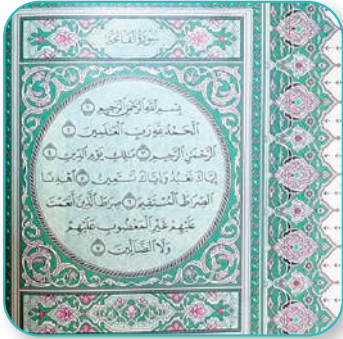 سُورَةُ الْفَاتِحَةِ
بِسْمِ اللَّهِ الرَّحْمَٰنِ الرَّحِيمِ ١
الْحَمْدُ لِلَّهِ رَبِّ الْعَالَمِينَ ٢
الرَّحْمَٰنِ الرَّحِيمِ ٣ مَالِكِ يَوْمِ الدِّينِ ٤
إِيَّاكَ نَعْبُدُ وَإِيَّاكَ نَسْتَعِينُ ٥ اهْدِنَا
الصِّرَاطَ الْمُسْتَقِيمَ ٦ صِرَاطَ الَّذِينَ أَنْعَمْتَ
عَلَيْهِمْ غَيْرِ الْمَغْضُوبِ عَلَيْهِمْ
وَلَا الضَّالِّينَ ٧